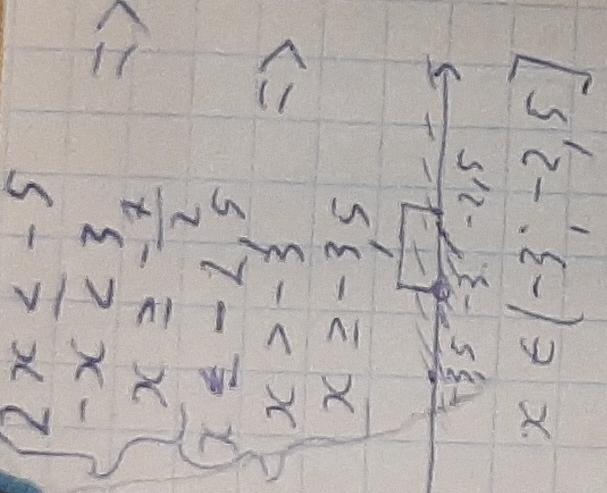 2x ≤ -5
-x < 3 =>
x ≥ -7/2
x ≤ -2,5
x > -3 =>
x ≥ -3,5
-3,5 -3 -2,5
x ∈ (-3; -2,5]